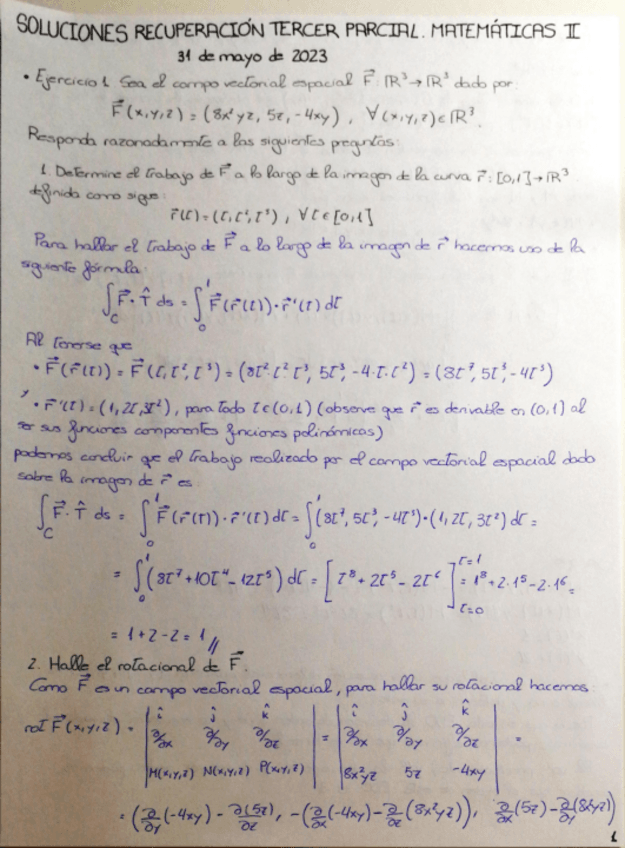 SOLUCIONES RECUPERACIÓN TERCER PARCIAL. MATEMÁTICAS II
31 de mayo de 2023
• Ejercicio 1. Sea el campo vectorial espacial F⃗: ℝ³→ℝ³ dado por:
F⃗(x,y,z) = (8x²yz, 5z, -4xy), ∀(x,y,z)∈ℝ³.
Responda razonadamente a las siguientes preguntas:
1. Determine el trabajo de F⃗ a lo largo de la imagen de la curva r⃗: [0,1]→ℝ³
definida como sigue:
r⃗(t) = (t, t², t³), ∀t∈[0,1]
Para hallar el trabajo de F⃗ a lo largo de la imagen de r⃗ hacemos uso de la
siguiente fórmula:
∫_C F⃗·T̂ ds = ∫₀¹ F⃗(r⃗(t))·r⃗'(t) dt
Al tenerse que
• F⃗(r⃗(t)) = F⃗(t, t², t³) = (8t²·t²·t³, 5t³, -4·t·t²) = (8t⁷, 5t³, -4t³)
y • r⃗'(t) = (1, 2t, 3t²), para todo t∈(0,1) (observe que r⃗ es derivable en (0,1) al
ser sus funciones componentes funciones polinómicas)
podemos concluir que el trabajo realizado por el campo vectorial espacial dado
sobre la imagen de r⃗ es
∫_C F⃗·T̂ ds = ∫₀¹ F⃗(r⃗(t))·r⃗'(t) dt = ∫₀¹ (8t⁷, 5t³, -4t³)·(1, 2t, 3t²) dt =
= ∫₀¹ (8t⁷+10t⁴-12t⁵) dt = [t⁸+2t⁵-2t⁶]_{t=0}^{t=1} = 1⁸+2·1⁵-2·1⁶ =
= 1+2-2 = 1 //
2. Halle el rotacional de F⃗.
Como F⃗ es un campo vectorial espacial, para hallar su rotacional hacemos:
rot F⃗(x,y,z) = | î ĵ k̂ | = | î ĵ k̂ | =
| ∂/∂x ∂/∂y ∂/∂z | | ∂/∂x ∂/∂y ∂/∂z |
| M(x,y,z) N(x,y,z) P(x,y,z) | | 8x²yz 5z -4xy |
= (∂/∂y(-4xy) - ∂(5z)/∂z, -(∂/∂x(-4xy) - ∂/∂z(8x²yz)), ∂/∂x(5z) - ∂/∂y(8x²yz))
1